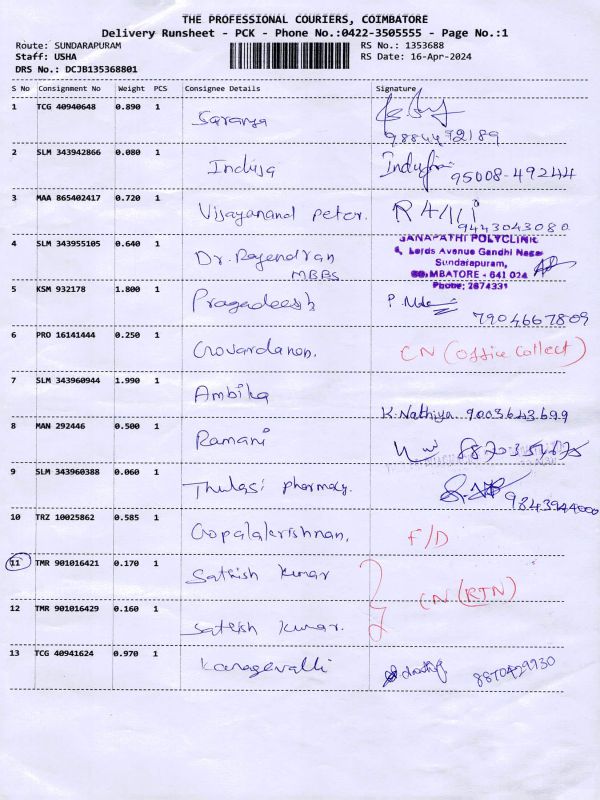 THE PROFESSIONAL COURIERS, COIMBATORE
Delivery Runsheet - PCK - Phone No.:0422-3505555 - Page No.:1
Route: SUNDARAPURAM
RS No.: 1353688
Staff: USHA
RS Date: 16-Apr-2024
DRS No.: DCJB135368801
S No Consignment No Weight PCS Consignee Details Signature
1 TCG 40940648 0.890 1 Saranya
9884492189
2 SLM 343942866 0.080 1 Induja Induja 95008-49244
3 MAA 865402417 0.720 1 Vijayanand Peter.
9443043080
4 SLM 343955105 0.640 1 Dr. Rajendran
MBBS
GANAPATHI POLYCLINIC
Lords Avenue Gandhi Nagar
Sundarapuram,
COIMBATORE - 641 024
Phone: 2674331
5 KSM 932178 1.800 1 Pragadeesh
7904667809
6 PRO 16141444 0.250 1 Govardanan. CN (Office Collect)
7 SLM 343960944 1.990 1 Ambika
K. Nathiya 9003643699
8 MAN 292446 0.500 1 Ramani
9 SLM 343960388 0.060 1 Thulasi pharmacy.
9843944000
10 TRZ 10025862 0.585 1 Gopalakrishnan. F/D
11 TMR 901016421 0.170 1 Sathish Kumar
CN (RTN)
12 TMR 901016429 0.160 1 Sathish Kumar.
13 TCG 40941624 0.970 1 Kanagavalli